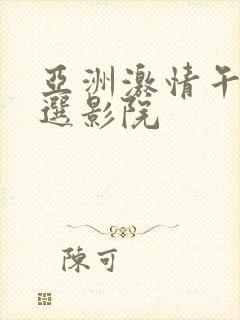 亞洲激情午
選影院
陳可